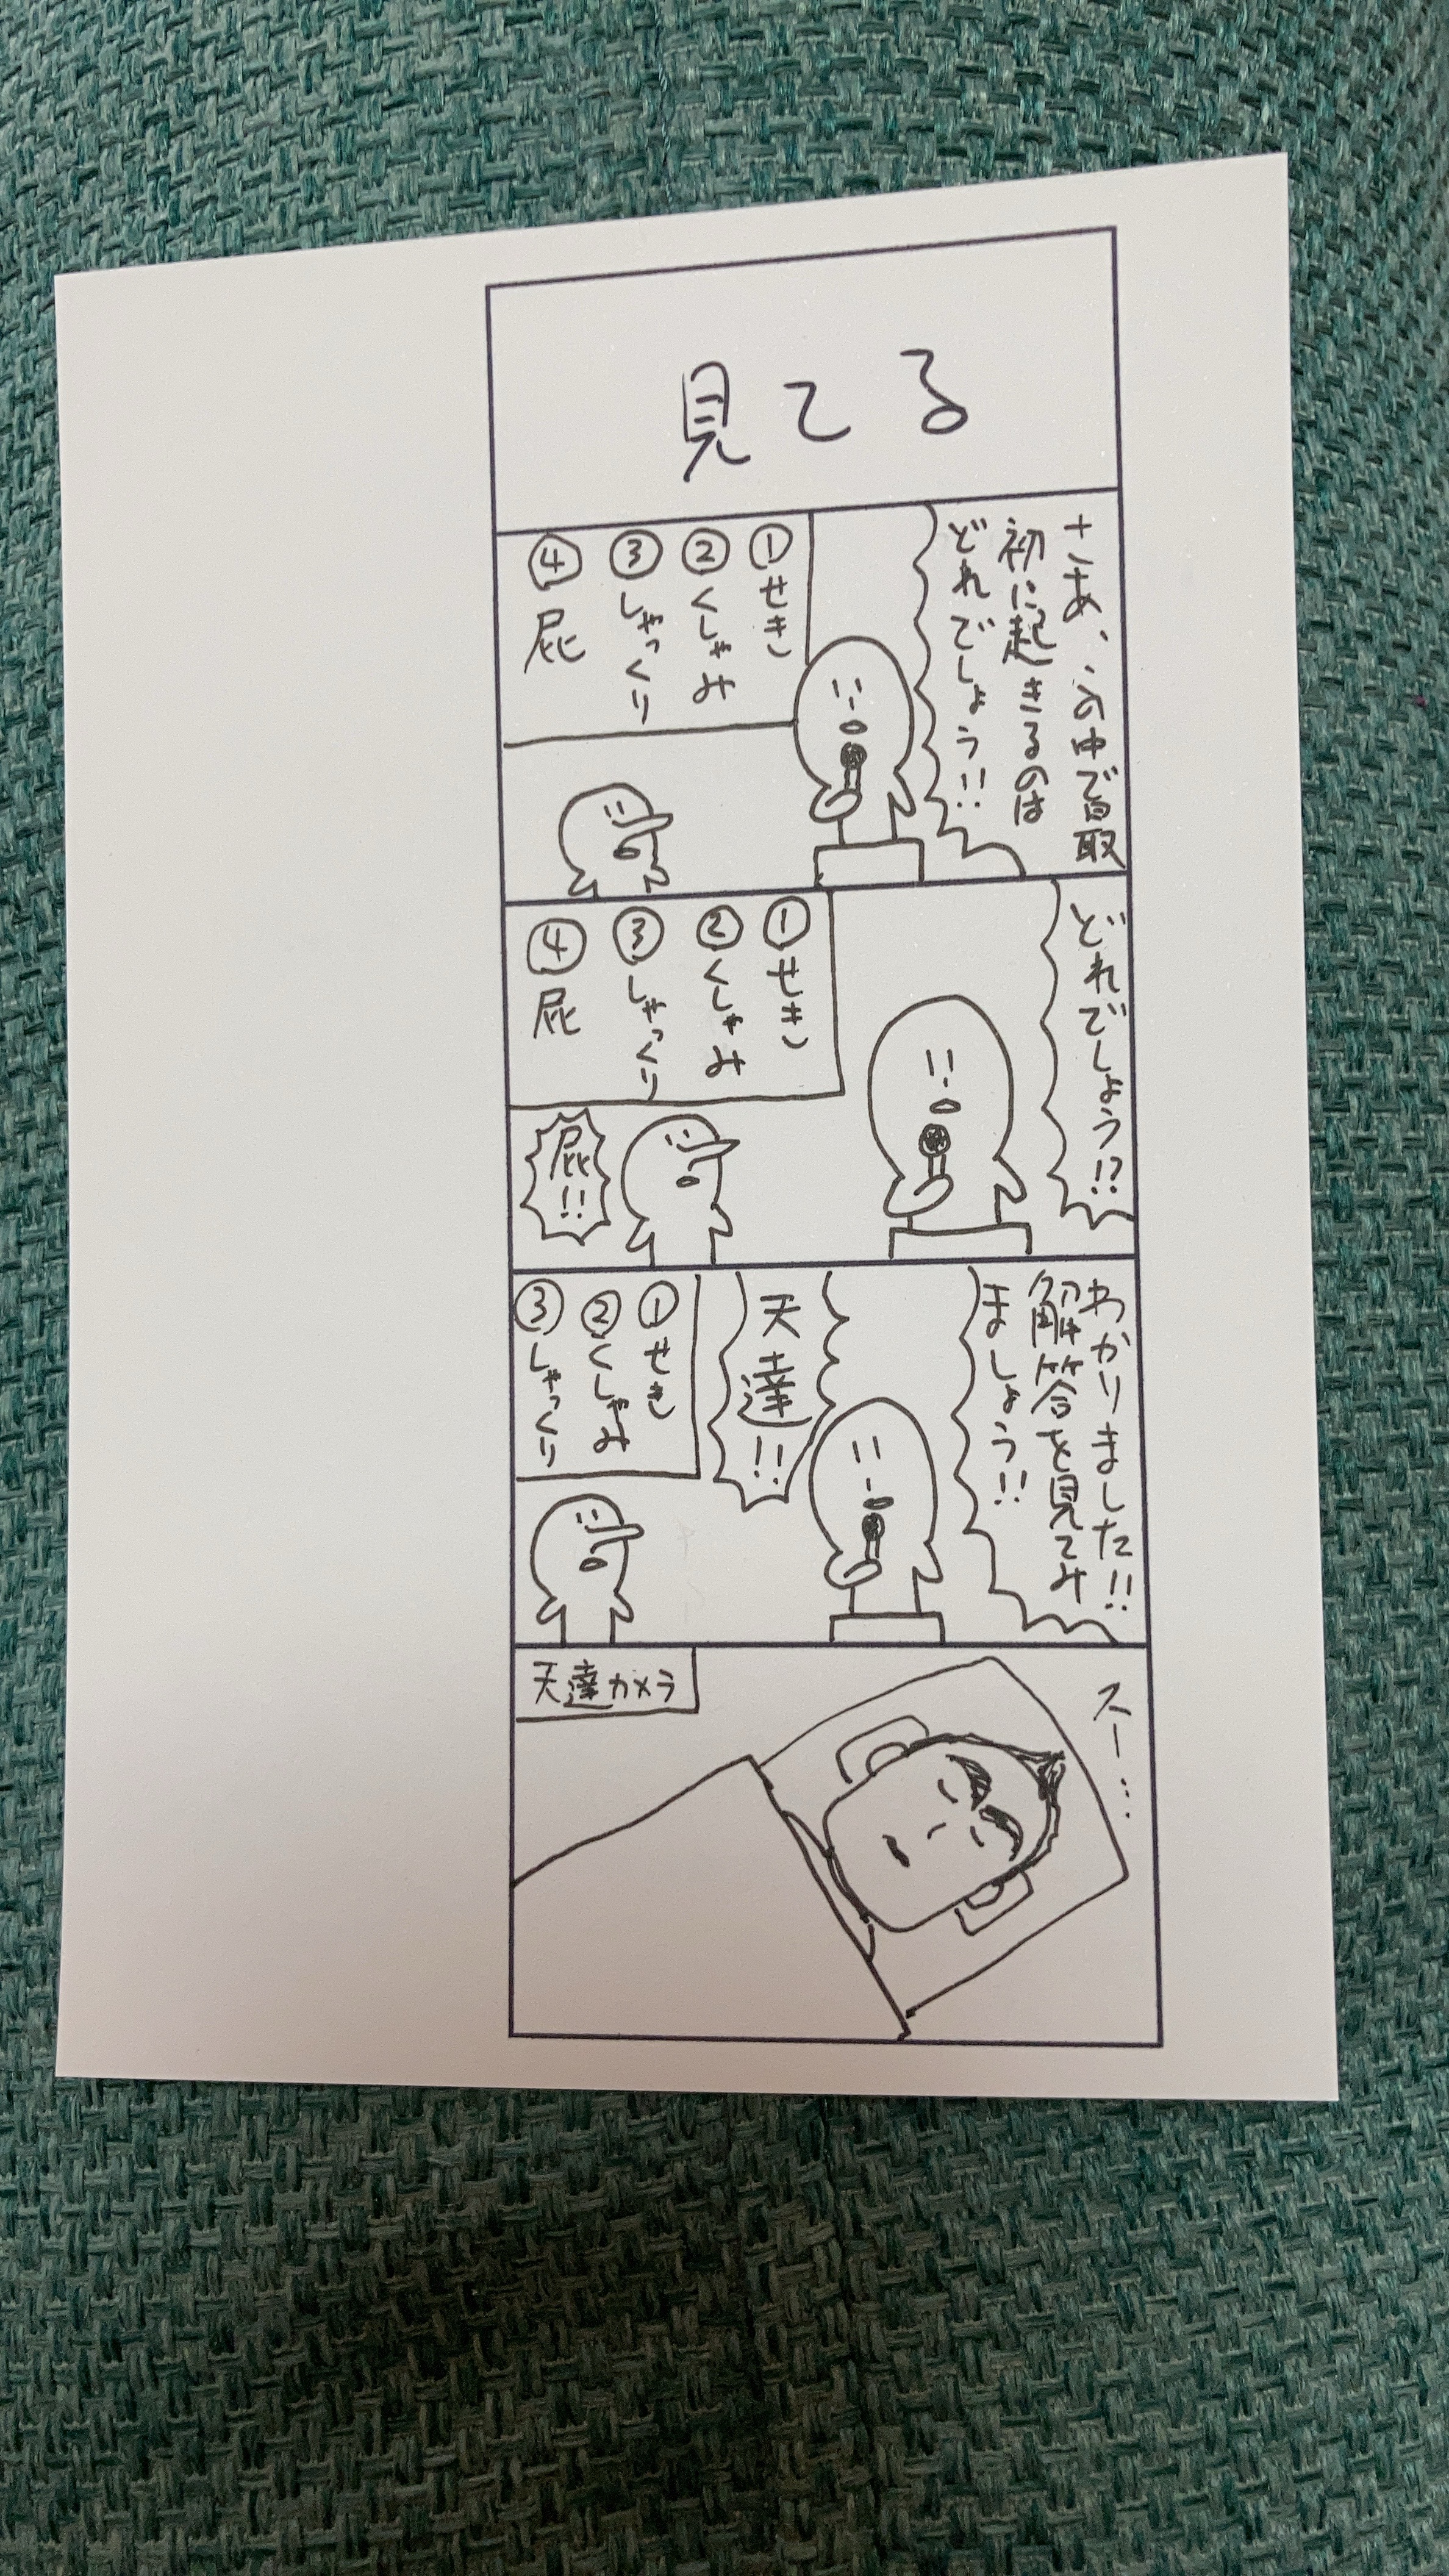 見てる
さあ、この中で最
初に起きるのは
どれでしょう!!
①せき
②くしゃみ
③しゃっくり
④屁
どれでしょう!?
①せき
②くしゃみ
③しゃっくり
④屁
屁!!
わかりました!!
解答を見てみ
ましょう!!
天達!!
①せき
②くしゃみ
③しゃっくり
スー…
天達カメラ